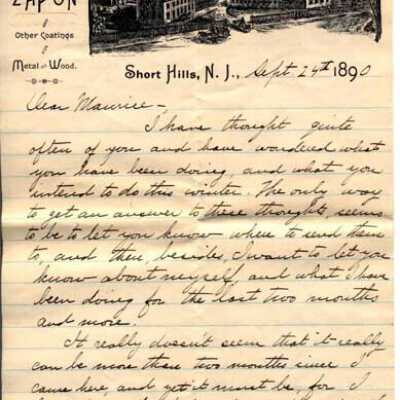 ZAPON
Other Coatings
Metal and Wood.
Short Hills, N. J., Sept. 24th 1890
Dear Maurice -
I have thought quite
often of you and have wondered what
you have been doing, and what you
intend to do this winter. The only way
to get an answer to these thoughts, seems
to be to let you know where to send them
to, and then, besides, I want to let you
know about myself, and what I have
been doing for the last two months
and more.
It really doesn't seem that it really
can be more than two months since I
came here, and yet it must be, for I